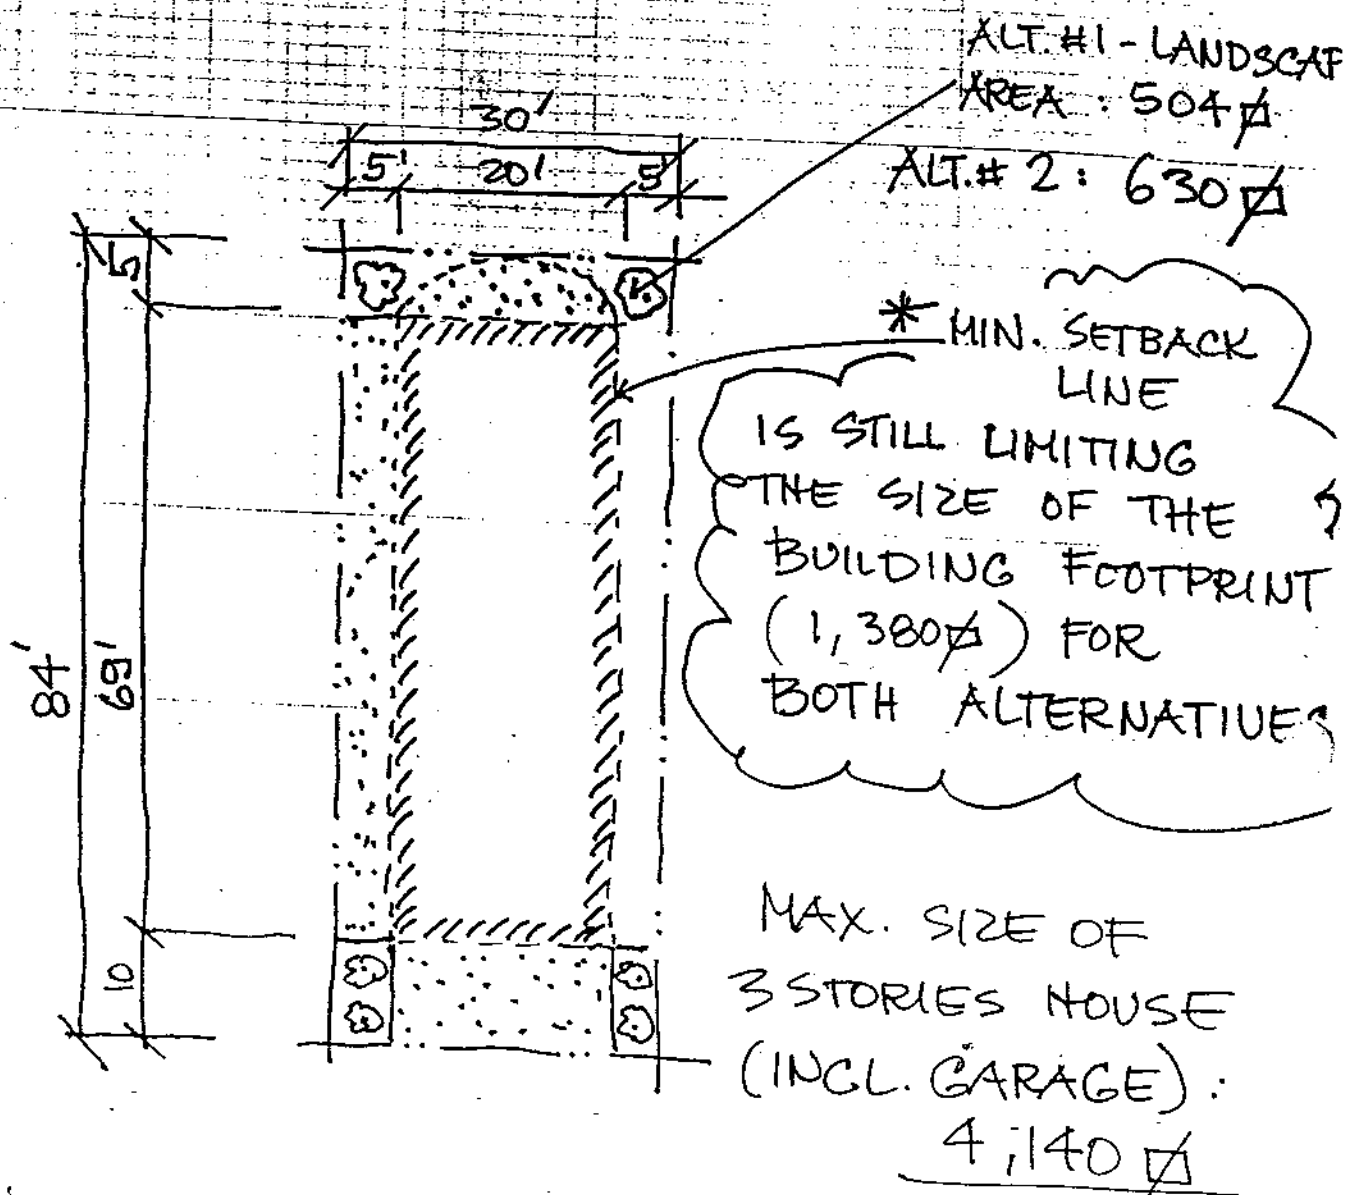 ALT. #1 - LANDSCAP
AREA : 504 ⏍
ALT. # 2 : 630 ⏍
30'
5' 20' 5'
5
84'
69'
10
* MIN. SETBACK
LINE
IS STILL LIMITING
THE SIZE OF THE
BUILDING FOOTPRINT
(1,380 ⏍) FOR
BOTH ALTERNATIVES
MAX. SIZE OF
3 STORIES HOUSE
(INCL. GARAGE) :
4,140 ⏍